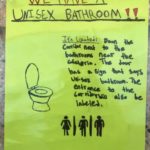 WE HAVE A
UNISEX BATHROOM!!
It's Located: Down the
Corridor next to the
bathrooms near the
cafeteria. The door
has a sign that says
unisex bathroom. The
entrance to the
corridor will also be
labeled.